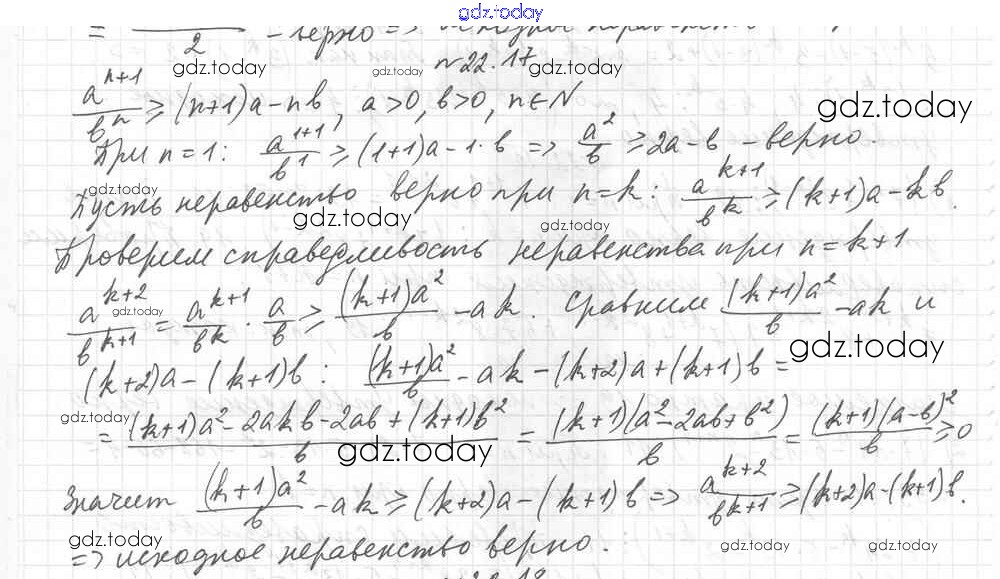 gdz.today
= 2 - верно =>
gdz.today gdz.today №22.17 gdz.today
a^{n+1}/b^n ≥ (n+1)a - nb, a>0, b>0, n∈N gdz.today
При n=1: a^{1+1}/b^1 ≥ (1+1)a - 1·b => a^2/b ≥ 2a - b - верно.
gdz.today
Пусть неравенство верно при n=k: a^{k+1}/b^k ≥ (k+1)a - kb.
gdz.today gdz.today
Проверим справедливость неравенства при n=k+1
a^{k+2}/b^{k+1} = a^{k+1}/b^k · a/b ≥ (k+1)a^2/b - ak. Сравним (k+1)a^2/b - ak и
gdz.today gdz.today
(k+2)a - (k+1)b : (k+1)a^2/b - ak - (k+2)a + (k+1)b =
gdz.today
= ((k+1)a^2 - 2akb - 2ab + (k+1)b^2)/b = (k+1)(a^2 - 2ab + b^2)/b = (k+1)(a-b)^2/b ≥ 0
gdz.today
Значит (k+1)a^2/b - ak ≥ (k+2)a - (k+1)b => a^{k+2}/b^{k+1} ≥ (k+2)a - (k+1)b.
gdz.today gdz.today gdz.today
=> исходное неравенство верно.